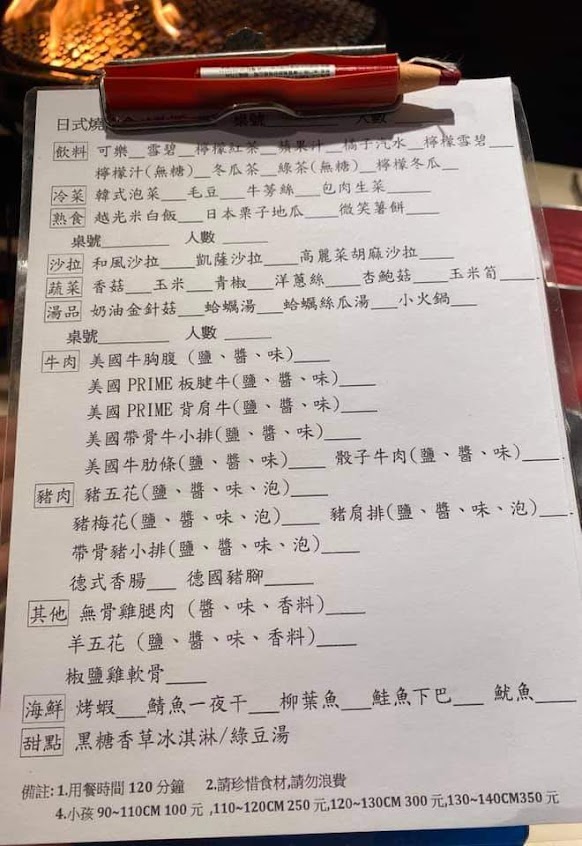 日式燒 桌號______ 人數
飲料 可樂__雪碧__檸檬紅茶__蘋果汁__橘子汽水__檸檬雪碧__
檸檬汁(無糖)__冬瓜茶__綠茶(無糖)__檸檬冬瓜__
冷菜 韓式泡菜__毛豆__牛蒡絲__包肉生菜____
熟食 越光米白飯___日本栗子地瓜___微笑薯餅___
桌號______ 人數____
沙拉 和風沙拉___凱薩沙拉___高麗菜胡麻沙拉___
蔬菜 香菇___玉米___青椒___洋蔥絲___杏鮑菇___玉米筍___.
湯品 奶油金針菇___蛤蠣湯___蛤蠣絲瓜湯___小火鍋___
桌號______ 人數____
牛肉 美國牛胸腹 (鹽、醬、味)___
美國 PRIME 板腱牛(鹽、醬、味)___
美國 PRIME 背肩牛(鹽、醬、味)___
美國帶骨牛小排(鹽、醬、味)___
美國牛肋條(鹽、醬、味)___ 骰子牛肉(鹽、醬、味)___.
豬肉 豬五花(鹽、醬、味、泡)___
豬梅花(鹽、醬、味、泡)___ 豬肩排(鹽、醬、味、泡)___.
帶骨豬小排(鹽、醬、味、泡)___
德式香腸___ 德國豬腳____
其他 無骨雞腿肉 (醬、味、香料)___
羊五花 (鹽、醬、味、香料)___
椒鹽雞軟骨___
海鮮 烤蝦___鯖魚一夜干___柳葉魚___鮭魚下巴___ 魷魚____
甜點 黑糖香草冰淇淋/綠豆湯
備註: 1.用餐時間 120 分鐘 2.請珍惜食材,請勿浪費
4.小孩 90~110CM 100 元 ,110~120CM 250 元,120~130CM 300 元,130~140CM350 元